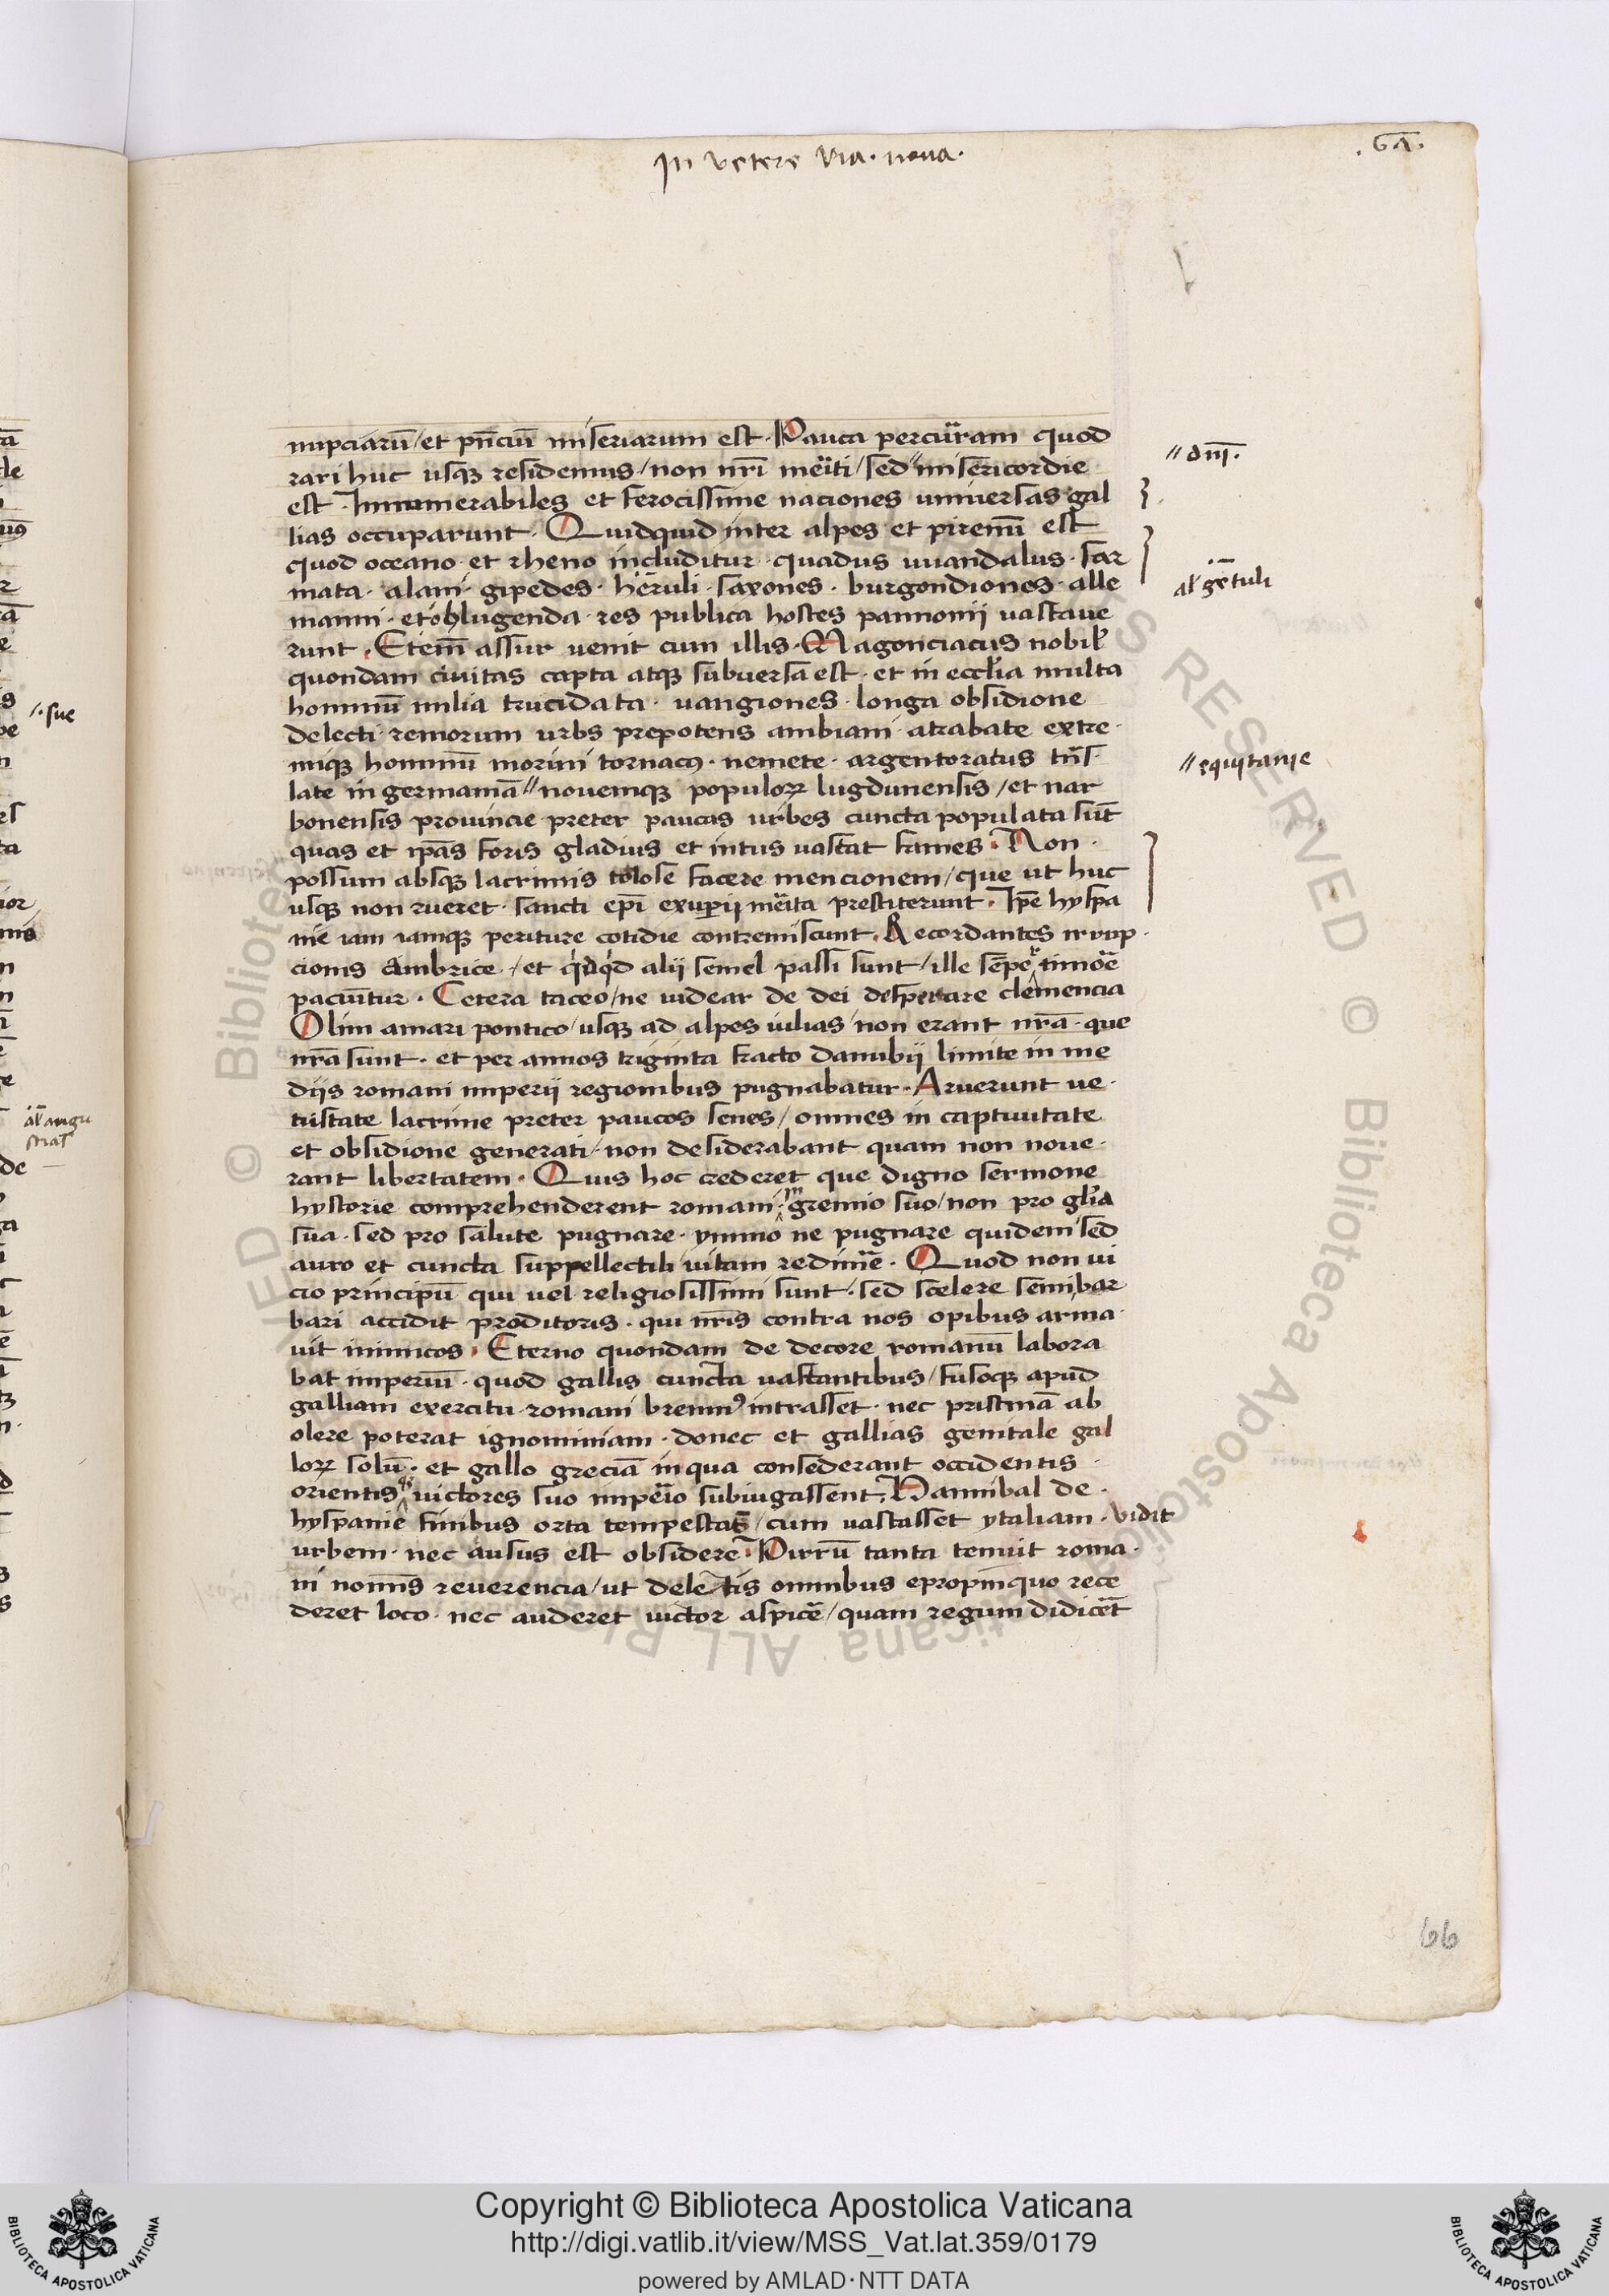 In vetere via. nova.
.61.
nupciarū / et pn̄ciū miseriarum est. Pauca percurram quod
rari huc usq; residemus / non nr̄i meriti / sed" misericordie
"dn̄i.
est. Innumerabiles et ferocissime naciones universas gal
lias occuparunt. Quidquid inter alpes et pirenū est
quod oceano et rheno includitur. quadus uuandalus. sar
mata. alani. gipedes. heruli. saxones. burgondiones. alle
al' getuli
manni. et o lugenda res publica hostes pannonij vastave
runt. Etem̄ assur venit cum illis. Magonciacus nobil'
quondam civitas capta atq; subversa est. et in eccl'ia multa
hominū milia trucidata. vangiones. longa obsidione
delecti remorum urbs prepotens ambiani atrabate extre.
miq; hominū morini tornacꝰ. nemete. argentoratus tn̄s.
"equitanie
late in germaniā" novemq; populoꝝ lugdunensis / et nar
bonensis provincie preter paucas urbes cuncta populata sūt
quas et ip̄as foris gladius et intus vastat fames. Non.
possum absq; lacrimis tolose facere mencionem / que ut huc
usq; non rueret. sancti ep̄i exuperii merita prestiterunt. Ip̄e hyspa
nie iam iamq; periture cotidie contremiscunt. Recordantes irrup.
cionis cimbrice. / et quidquid alij semel passi sunt / ille sēpe timore
paciuntur. Cetera taceo / ne videar de dei desperare clemencia
Olim amari pontico / usq; ad alpes iulias / non erant nr̄a. que
nr̄a sunt. et per annos triginta fracto danubij limite in me
dijs romani imperii regionibus pugnabatur. Aruerunt ve.
tustate lacrime preter paucos senes / omnes in captivitate
et obsidione generati / non desiderabant quam non nove.
rant libertatem. Quis hoc crederet que digno sermone
hystorie comprehenderent romam. in gremio suo / non pro gl'ia
sua. sed pro salute pugnare. ymmo ne pugnare quidem sed
auro et cuncta suppellectili vitam redimē. Quod non vi
cio principū qui vel religiosissimi sunt. sed scelere semibar
bari accidit proditoris. qui nr̄is contra nos opibus arma.
vit inimicos. Eterno quondam de decore romanū labora
bat imperiū. quod gallis cuncta vastantibus / fusoq; apud
galliam exercitu romani brennꝰ intrasset. nec pristinā ab
olere poterat ignominiam. donec et gallias genitale gal
loꝝ solū. et gallo greciā in qua consederant occidentis.
orientisq; victores suo imperio subiugassent. Hannibal de.
hyspanie finibus orta tempestas / cum vastasset ytaliam. vidit
urbem. nec ausus est obsidere. Pirrū tanta tenuit roma.
ni nom̄is reverencia / ut deletis omnibus epropinquo rece
deret loco. nec auderet victor aspicē / quam regum didicerāt
66
sue
al' angu
stiat
Copyright © Biblioteca Apostolica Vaticana
http://digi.vatlib.it/view/MSS_Vat.lat.359/0179
powered by AMLAD·NTT DATA